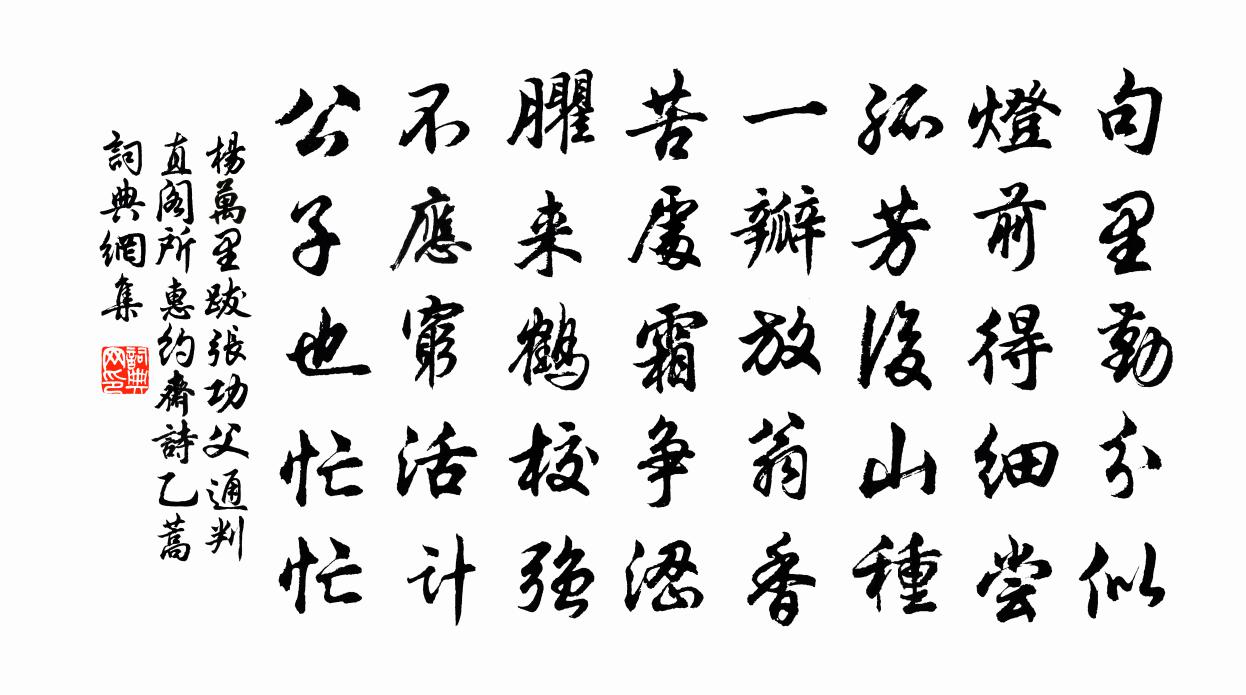 句里勤分似
燈前得細嘗
孤芳後山種
一瓣放翁香
苦處霜争澀
臞来鶴校強
不應窮活计
公子也忙忙
楊萬里跋張功父通判
直閣所惠約齋詩乙蒿
詞典網集
詞典网印